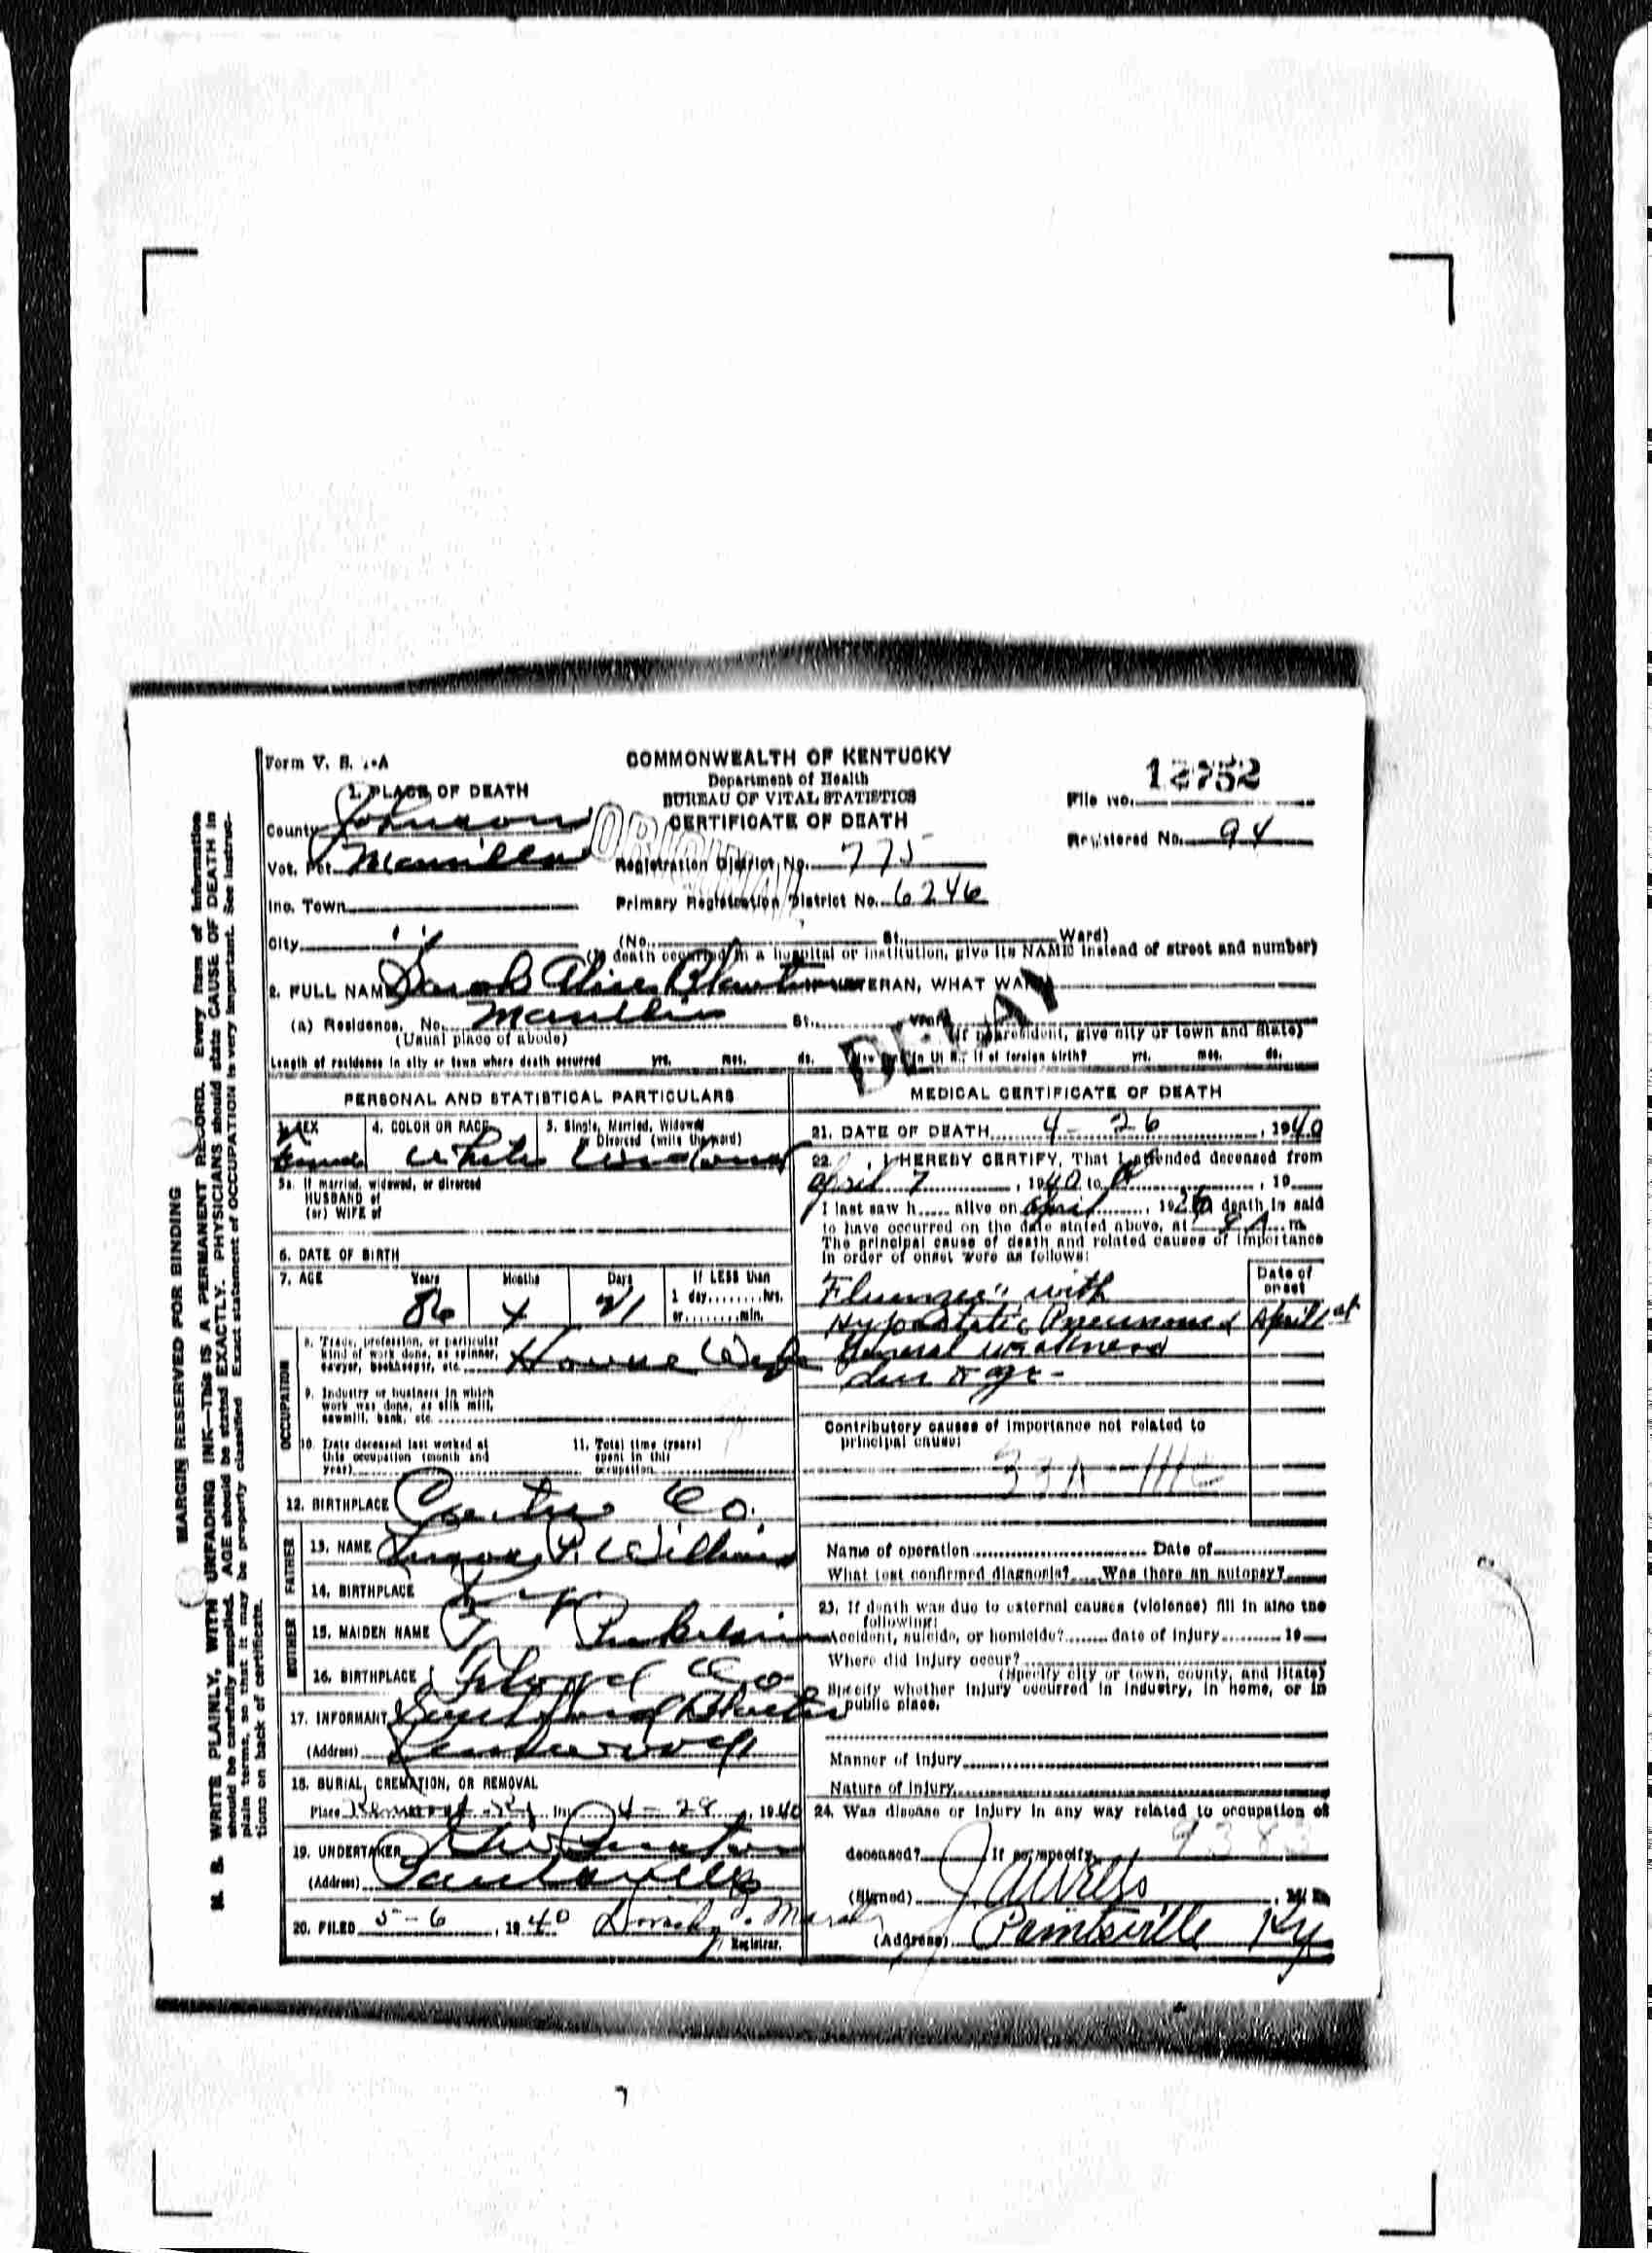 Form V. S. 1-A
COMMONWEALTH OF KENTUCKY
Department of Health
BUREAU OF VITAL STATISTICS
CERTIFICATE OF DEATH
ORIGINAL
File No. 12752
Registered No. 94
1. PLACE OF DEATH
County Johnson
Vot. Pct.
Registration District No. 775
Inc. Town
Primary Registration District No. 6246
City
(No. St. Ward)
(If death occurred in a hospital or institution, give its NAME instead of street and number)
2. FULL NAME Sarah Alice IF VETERAN, WHAT WAR
(a) Residence. No. St. Ward
(Usual place of abode) (If nonresident, give city or town and State)
DELAY
Length of residence in city or town where death occurred yrs. mos. ds. How long in U. S., if of foreign birth? yrs. mos. ds.
PERSONAL AND STATISTICAL PARTICULARS
3. SEX 4. COLOR OR RACE 5. Single, Married, Widowed
or Divorced (write the word)
Female White Widowed
5a. If married, widowed, or divorced
HUSBAND of
(or) WIFE of
6. DATE OF BIRTH
7. AGE Years Months Days If LESS than
1 day hrs.
or min.
86 4 21
OCCUPATION
8. Trade, profession, or particular
kind of work done, as spinner,
sawyer, bookkeeper, etc. House Wife
9. Industry or business in which
work was done, as silk mill,
sawmill, bank, etc.
10. Date deceased last worked at
this occupation (month and
year)
11. Total time (years)
spent in this
occupation
12. BIRTHPLACE Carter Co.
FATHER
13. NAME P. Williams
14. BIRTHPLACE Ky
MOTHER
15. MAIDEN NAME
16. BIRTHPLACE Floyd Co
17. INFORMANT
(Address)
18. BURIAL, CREMATION, OR REMOVAL
Place Ky. Date 4-28, 1940
19. UNDERTAKER
(Address) Paintsville
20. FILED 5-6, 1940
Registrar.
MEDICAL CERTIFICATE OF DEATH
21. DATE OF DEATH 4-26, 1940
22. I HEREBY CERTIFY, That I attended deceased from
April 7, 1940 to , 19
I last saw h alive on April 19 death is said
to have occurred on the date stated above, at m.
The principal cause of death and related causes of importance
in order of onset were as follows:
Date of
onset
with
Hypostatic Pneumonia April 1st
General weakness
due to age-
Contributory causes of importance not related to
principal cause:
Name of operation Date of
What test confirmed diagnosis? Was there an autopsy?
23. If death was due to external causes (violence) fill in also the
following:
Accident, suicide, or homicide? date of injury 19
Where did injury occur?
(Specify city or town, county, and State)
Specify whether injury occurred in industry, in home, or in
public place.
Manner of injury
Nature of injury
24. Was disease or injury in any way related to occupation of
deceased? If so, specify
(Signed) J A Wells, M. D.
(Address) Paintsville Ky
MARGIN RESERVED FOR BINDING
N. B. WRITE PLAINLY, WITH UNFADING INK—THIS IS A PERMANENT RECORD. Every item of information
should be carefully supplied. AGE should be stated EXACTLY. PHYSICIANS should state CAUSE OF DEATH in
plain terms, so that it may be properly classified. Exact statement of OCCUPATION is very important. See instruc-
tions on back of certificate.